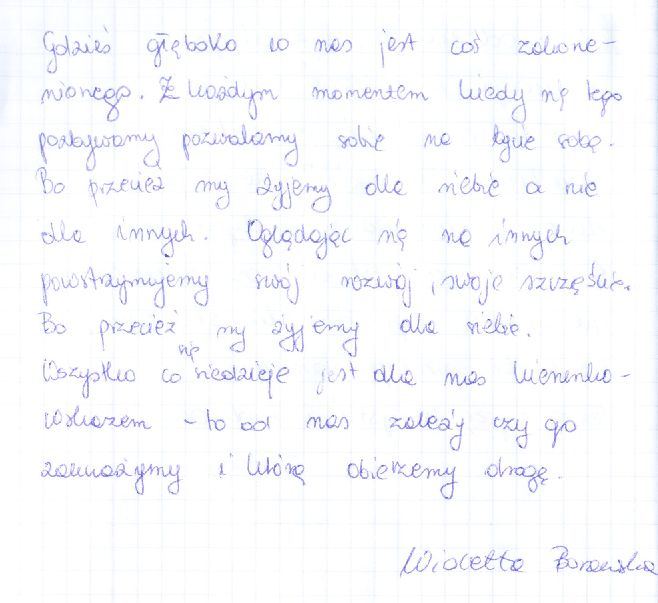 Gdzieś głęboko w nas jest coś zakorze-
nionego. Z każdym momentem kiedy się tego
pozbywamy pozwalamy sobie na bycie sobą.
Bo przecież my żyjemy dla siebie a nie
dla innych. Oglądając się na innych
powstrzymujemy swój rozwój, swoje szczęście.
Bo przecież my żyjemy dla siebie.
Wszystko co się niedzieje jest dla nas kierunko-
wskazem - to od nas zależy czy go
zauważymy i którą obierzemy drogę.
Wioletta